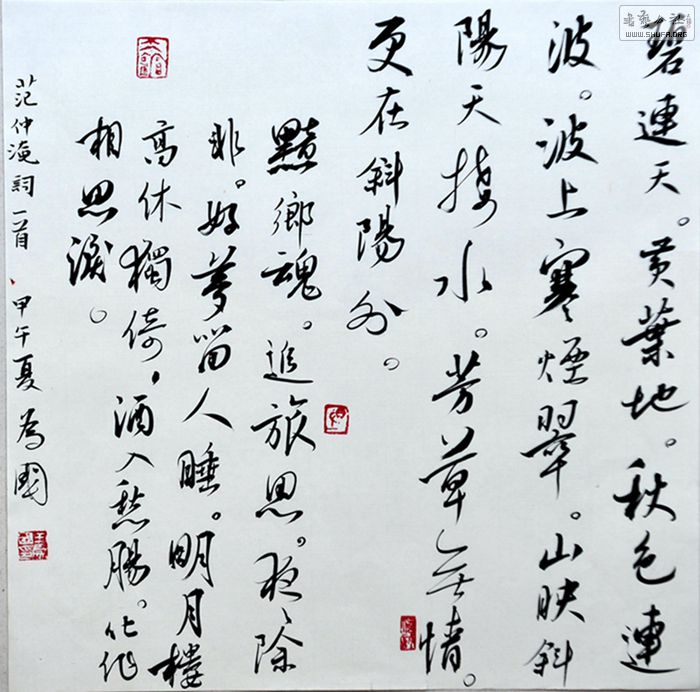 碧連天。黄葉地。秋色連
波。波上寒煙翠。山映斜
陽天接水。芳草無情。
更在斜陽外。
黯鄉魂。追旅思。夜〻除
非。好夢留人睡。明月樓
高休獨倚，酒入愁腸。化作
相思淚。
范仲淹詞一首 甲午夏 為國
WWW.SHUFA.ORG